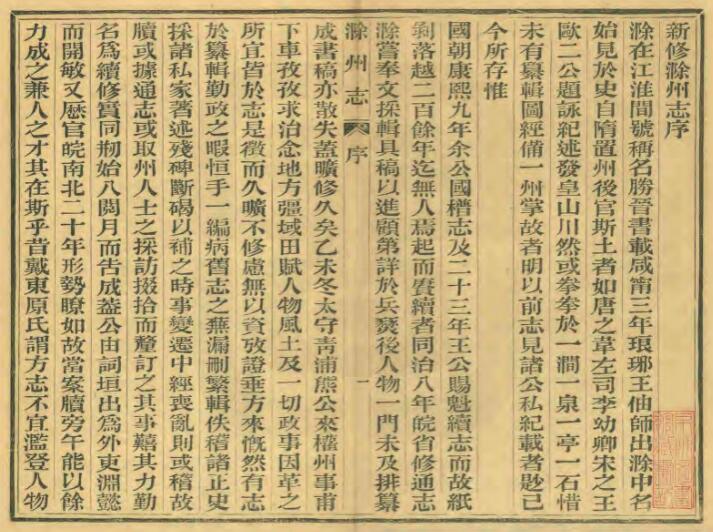 新修滁州志序
滁在江淮間號稱名勝晉書載咸甯三年琅琊王伷師出滁中名
始見於史自隋置州後官斯土者如唐之韋左司李幼卿宋之王
歐二公題詠紀述發皇山川然或拳拳於一澗一泉一亭一石惜
未有纂輯圖經備一州掌故者明以前志見諸公私紀載者尠已
今所存惟
國朝康熙九年余公國𣒅志及二十三年王公賜魁續志而故紙
剝落越二百餘年迄無人焉起而賡續者同治八年皖省修通志
滁嘗奉文採輯具稿以進顧第詳於兵燹後人物一門未及排纂
滁州志 序 一
成書稿亦散失蓋曠修久矣乙未冬太守青浦熊公來權州事甫
下車孜孜求治念地方疆域田賦人物風土及一切政事因革之
所宜皆於志是徵而久曠不修慮無以資攷證垂方來慨然有志
於纂輯勤政之暇恒手一編病舊志之蕪漏刪繁輯佚稽諸正史
採諸私家著述殘碑斷碣以補之時事變遷中經喪亂則或稽故
牘或據通志或取州人士之採訪掇拾而釐訂之其事囏其力勤
名爲續修實同剏始八閱月而告成蓋公由詞垣出爲外吏淵懿
而開敏又歷官皖南北二十年形勢瞭如故當案牘旁午能以餘
力成之兼人之才其在斯乎昔戴東原氏謂方志不宜濫登人物